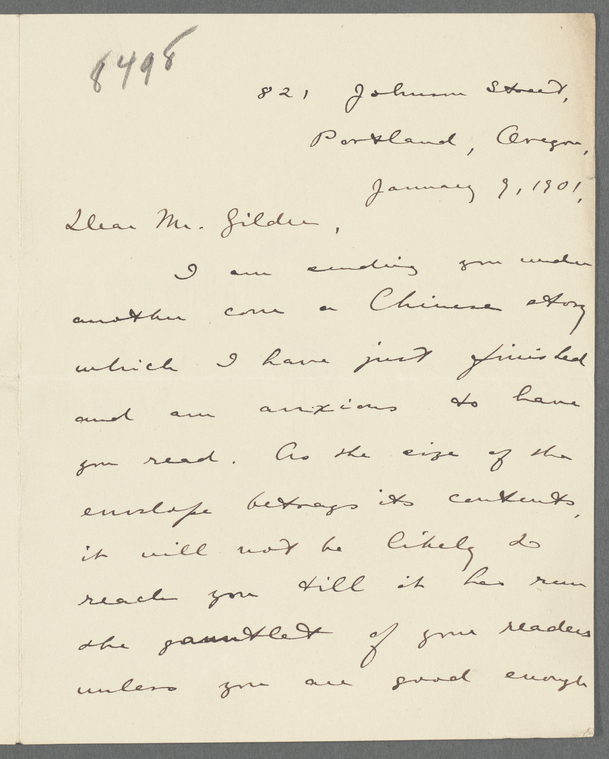 8498
821 Johnson Street,
Portland, Oregon,
January 9, 1901,
Dear Mr. Gilder,
I am sending you under
another cover a Chinese story
which I have just finished
and am anxious to have
you read. As the size of the
envelope betrays its contents,
it will not be likely to
reach you till it has run
the gauntlet of your readers
unless you are good enough